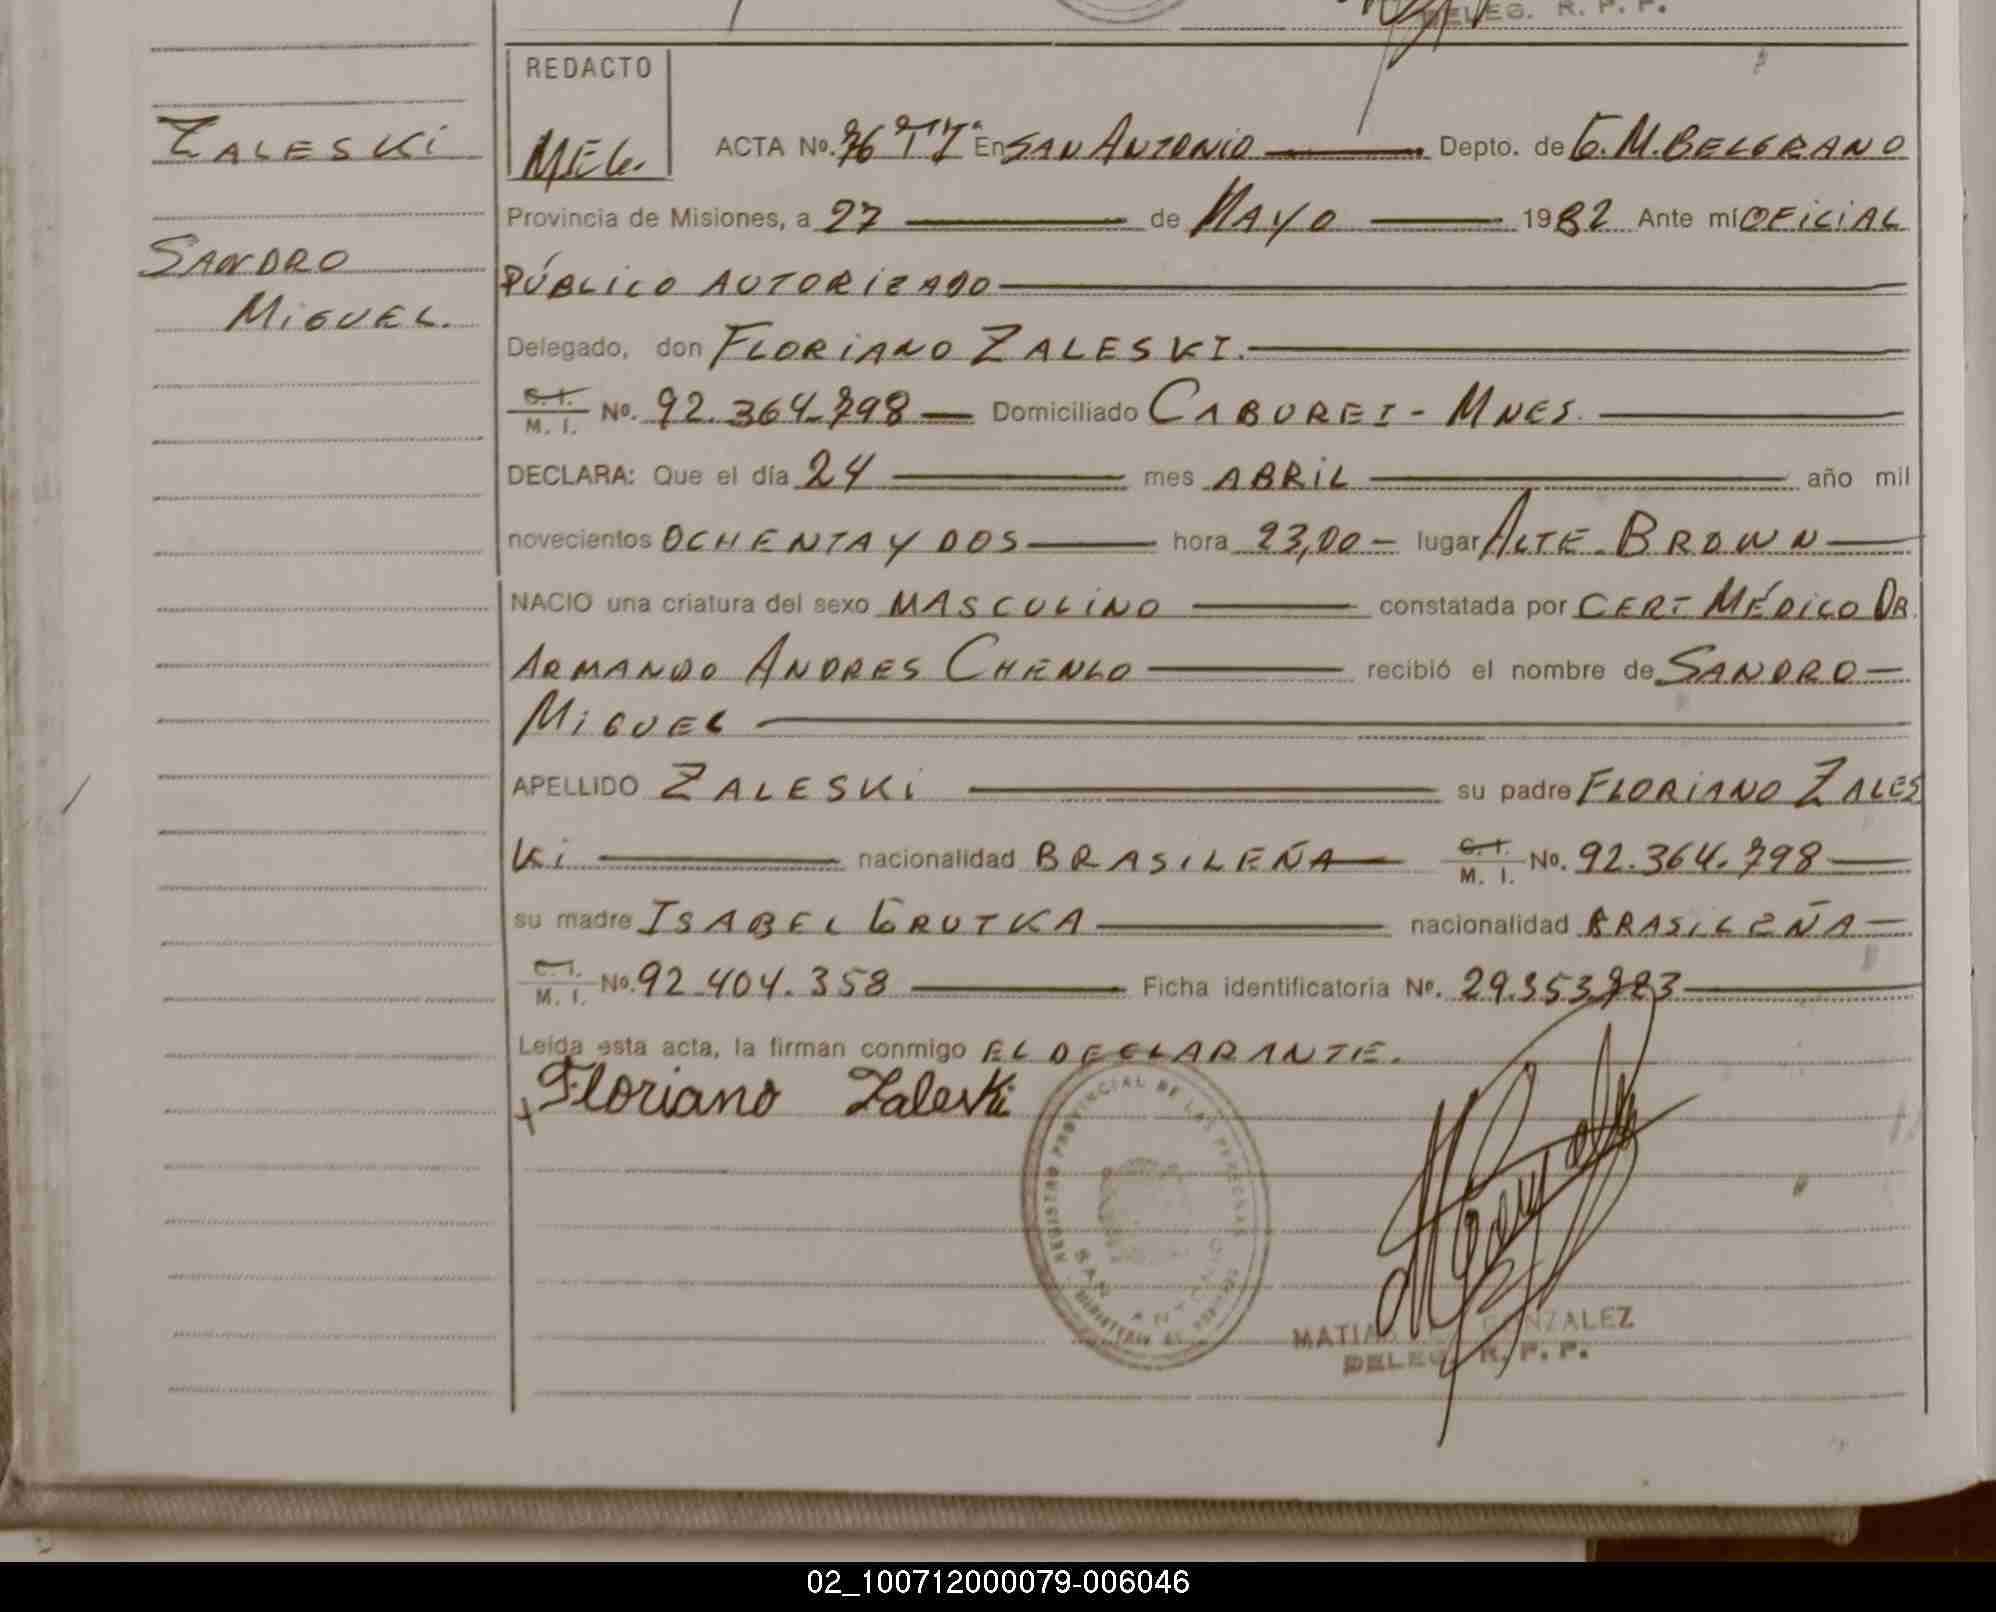 DELEG. R. P. P.
REDACTO
ZALESKI
MEG.
ACTA No. 76 En SAN ANTONIO Depto. de G. M. BELGRANO
Provincia de Misiones, a 27 de MAYO 1982 Ante mí OFICIAL
SANDRO
PÚBLICO AUTORIZADO
MIGUEL.
Delegado, don FLORIANO ZALESKI.
C. I.
M. I. No. 92.364.798 Domiciliado CABUREI - MNES.
DECLARA: Que el día 24 mes ABRIL año mil
novecientos OCHENTA Y DOS hora 23,00 - lugar ALTE. BROWN
NACIO una criatura del sexo MASCULINO constatada por CERT MÉDICO DR.
ARMANDO ANDRES CHENLO recibió el nombre de SANDRO
MIGUEL
APELLIDO ZALESKI su padre FLORIANO ZALES
KI nacionalidad BRASILEÑA C. I.
M. I. No. 92.364.798
su madre ISABEL GRUTKA nacionalidad BRASILEÑA
C. I.
M. I. No. 92.404.358 Ficha identificatoria No. 29.353.783
Leída esta acta, la firman conmigo EL DECLARANTE.
Floriano Zaleski
REGISTRO PROVINCIAL DE LAS PERSONAS
SAN ANTONIO
MATIAS GONZALEZ
DELEG. R. P. P.
02_100712000079-006046